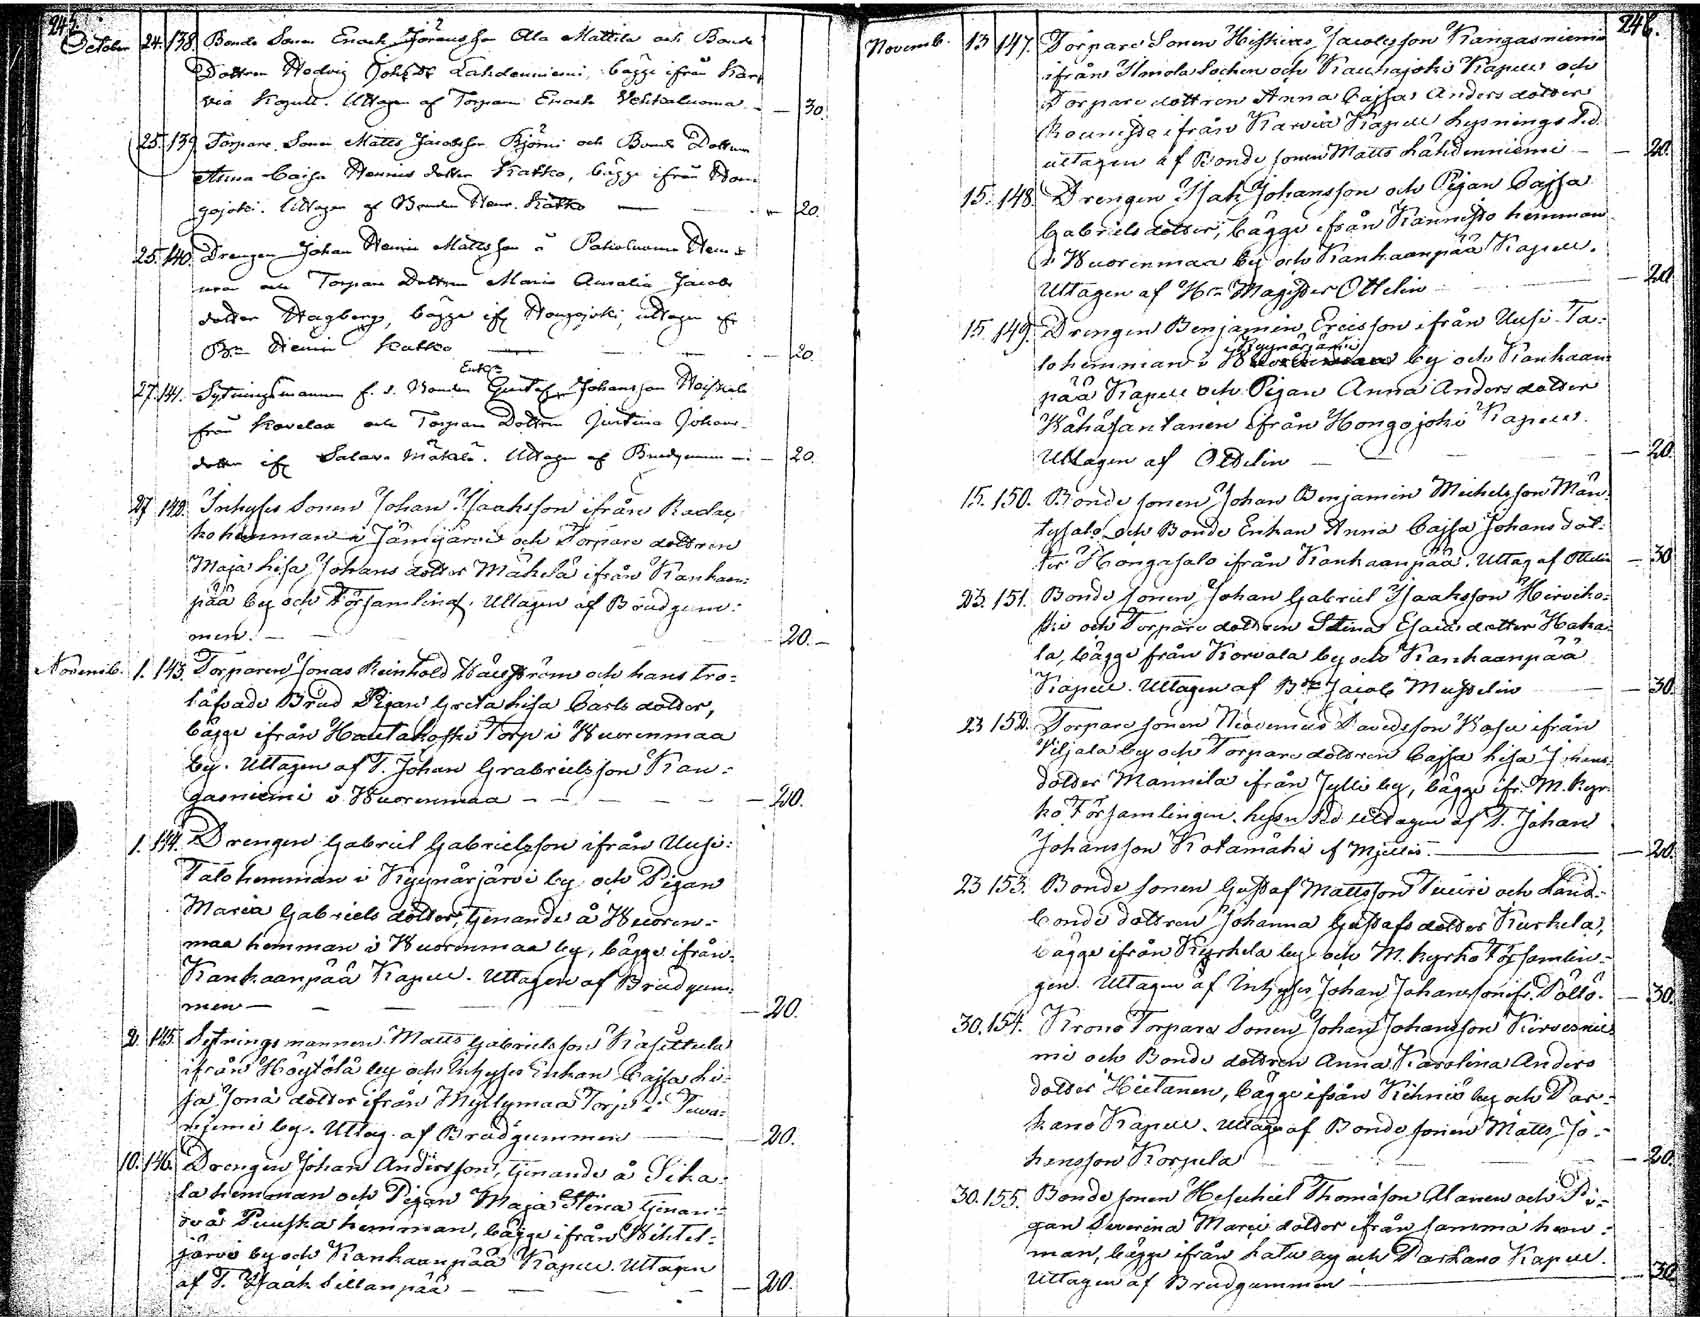 245.
October 24. 138. Bonde Sonen Enock Jöransson Ala Mattila och Bonde
Dottren Hedvig Lahdenniemi, bägge ifrån Kar-
via Kapell. Uttagen af Torparen Enock Vehkaluoma — 30.
25. 139. Torpare Sonen Matts Jacobsson Björni och Bonde Dottren
Anna Caisa Henrics dotter Katko, bägge ifrån Hon-
gojoki. Uttagen af Bonden Henr. Katko — 20.
25. 140. Drengen Johan Henric Mattsson å Paholuoma Hem-
man och Torpare Dottren Maria Amalia Jacobs
dotter Hagberg, bägge ifr Hongojoki, uttagen af
Bn Henric Katko — 20.
Enkl.
27. 141. Sytningsmannen f. d. Bonden Gustaf Johansson Heiskala
från Kovelaa och Torpare Dottren Justina Johans-
dotter ifr Salava Mäkälä. Uttagen af Brudgummen — 20.
27 142. Inhyses Sonen Johan Isaaksson ifrån Rada
ko hemman i Jämijärvi och Torpare dottren
Maja Lisa Johans dotter Mäkelä ifrån Kankaan-
pää by och Församling. Uttagen af Brudgum-
men. — 20. —
Novemb. 1. 143. Torparen Jonas Reinhold Wallström och hans tro-
låfvade Brud Pigan Greta Lisa Carls dotter,
bägge ifrån Hautakoski Torp i Wuorenmaa
by. Uttagen af T. Johan Grabrielsson Kan-
gasniemi i Wuorenmaa — 20.
1. 144. Drengen Gabriel Gabrielsson ifrån Uusi-
Talo hemman i Kyynärjärvi by och Pigan
Maria Gabriels dotter, tjenande å Wuoren-
maa hemman i Wuorenmaa by, bägge ifrån
Kankaanpää Kapell. Uttagen af Brudgum-
men — 20.
2. 145. Sytningsmannen Matts Gabrielsson Käsittula
ifrån Höytölä by och Inhyses Enkan Cajsa Li-
sa Jona dotter ifrån Myllymaa Torp i Tuva-
niemi by. Uttag. af Brudgummen — 20.
10. 146. Drengen Johan Andersson, tjenande å Pika-
la hemman och Pigan Maja Stina tjenan-
de å Puuska hemman, bägge ifrån Wihtel-
järvi by och Kankaanpää Kapell. Uttagen
af T. Isaak Sillanpää — 20.
246.
Novemb. 13 147. Torpare Sonen Hiskias Jacobsson Kangasniemi
ifrån Ilmola Sochen och Kauhajoki Kapell och
Torpare dottren Anna Cajsa Anders dotter
Rounisto ifrån Karvia Kapell Lysnings Sed.
uttagen af Bonde sonen Matts Lähdenniemi — 20.
15. 148. Drengen Isak Johansson och Pigan Cajsa
Gabriels dotter, bägge ifrån Kannisto hemman
i Wuorenmaa by och Kankaanpää Kapell.
Uttagen af Hrn Magister Ottelin — 20
15. 149. Drengen Benjamin Ericsson ifrån Uusi Ta-
Kyynärjärvi
lo hemman i Wuorenmaa by och Kankaan-
pää Kapell och Pigan Anna Anders dotter
Wähäsantanen ifrån Hongojoki Kapell.
Uttagen af Ottelin — 20.
15. 150. Bonde sonen Johan Benjamin Michelsson Män-
tysalo och Bonde Enkan Anna Cajsa Johans dot-
ter Hongasalo ifrån Kankaanpää. Uttag af Ottelin — 30
23. 151. Bonde sonen Johan Gabriel Isaaksson Hirviko-
ski och Torpare dottren Stina Esaias dotter Haka-
la, bägge från Korvala by och Kankaanpää
Kapell. Uttagen af Bn Jacob Musselin — 30.
23 152. Torpare sonen Nicodemus Davidsson Wasu ifrån
Viljala by och Torpare dottren Cajsa Lisa Johans-
dotter Mannila ifrån Jylli by, bägge ifr. M. Kyr-
ko Församlingen, Lysn Sed uttagen af T. Johan
Johansson Kotamäki af Mjellis — 20.
23 153. Bonde sonen Gustaf Mattsson Tuiiri och Land-
bonde dottren Johanna Gustafs dotter Kurkela,
bägge ifrån Kyrkela by och M. Kyrko Församlin-
gen. Uttagen af Inhyses Johan Johansson ifr. Pöllö. — 30.
30. 154. Krono Torpare Sonen Johan Johansson Kirvesnie-
mi och Bonde dottren Anna Karolina Anders
dotter Hietanen, bägge ifrån Kihniö by och Par-
kano Kapell. Uttagen af Bonde sonen Matts Jo-
hansson Korpela — 20.
30. 155. Bonde sonen Hesekiel Thomasson Alanen och Pi-
gan Severina Maria dotter ifrån samma hem-
man, bägge ifrån Laturi by och Parkano Kapell.
Uttagen af Brudgummen — 30